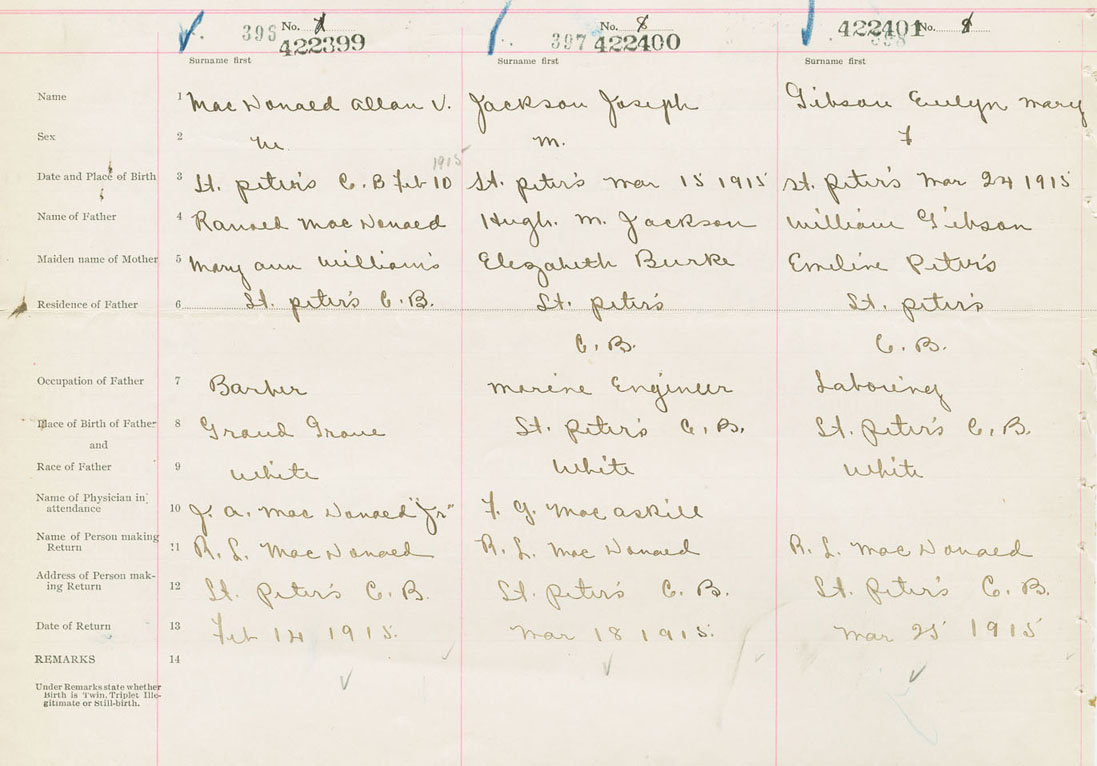 396 No. 7
422399
397 No. 8
422400
422401 No. 9
398
Surname first
Surname first
Surname first
Name 1 Mac Donald Allan V. Jackson Joseph Gibson Evelyn Mary
Sex 2 M. M. F
1915
Date and Place of Birth 3 St. Peter's C. B Feb 10 St. Peter's Mar 15 1915 St. Peter's Mar 24 1915
Name of Father 4 Ranald Mac Donald Hugh. M. Jackson William Gibson
Maiden name of Mother 5 Mary Ann William's Elezabeth Burke Emeline Peter's
Residence of Father 6 St. Peter's C. B. St. Peter's St. Peter's
C. B. C. B.
Occupation of Father 7 Barber Marine Engineer Laboring
Place of Birth of Father 8 Grand Grave St. Peter's C. B. St. Peter's C. B.
and
Race of Father 9 White White White
Name of Physician in
attendance 10 J. A. Mac Donald "Jr" F. G. MacAskill
Name of Person making
Return 11 R. L. Mac Donald R. L. Mac Donald R. L. Mac Donald
Address of Person mak-
ing Return 12 St. Peter's C. B. St. Peter's C. B. St. Peter's C. B.
Date of Return 13 Feb 14 1915. Mar 18 1915. Mar 25 1915
REMARKS 14
Under Remarks state whether
Birth is Twin, Triplet Ille-
gitimate or Still-birth.